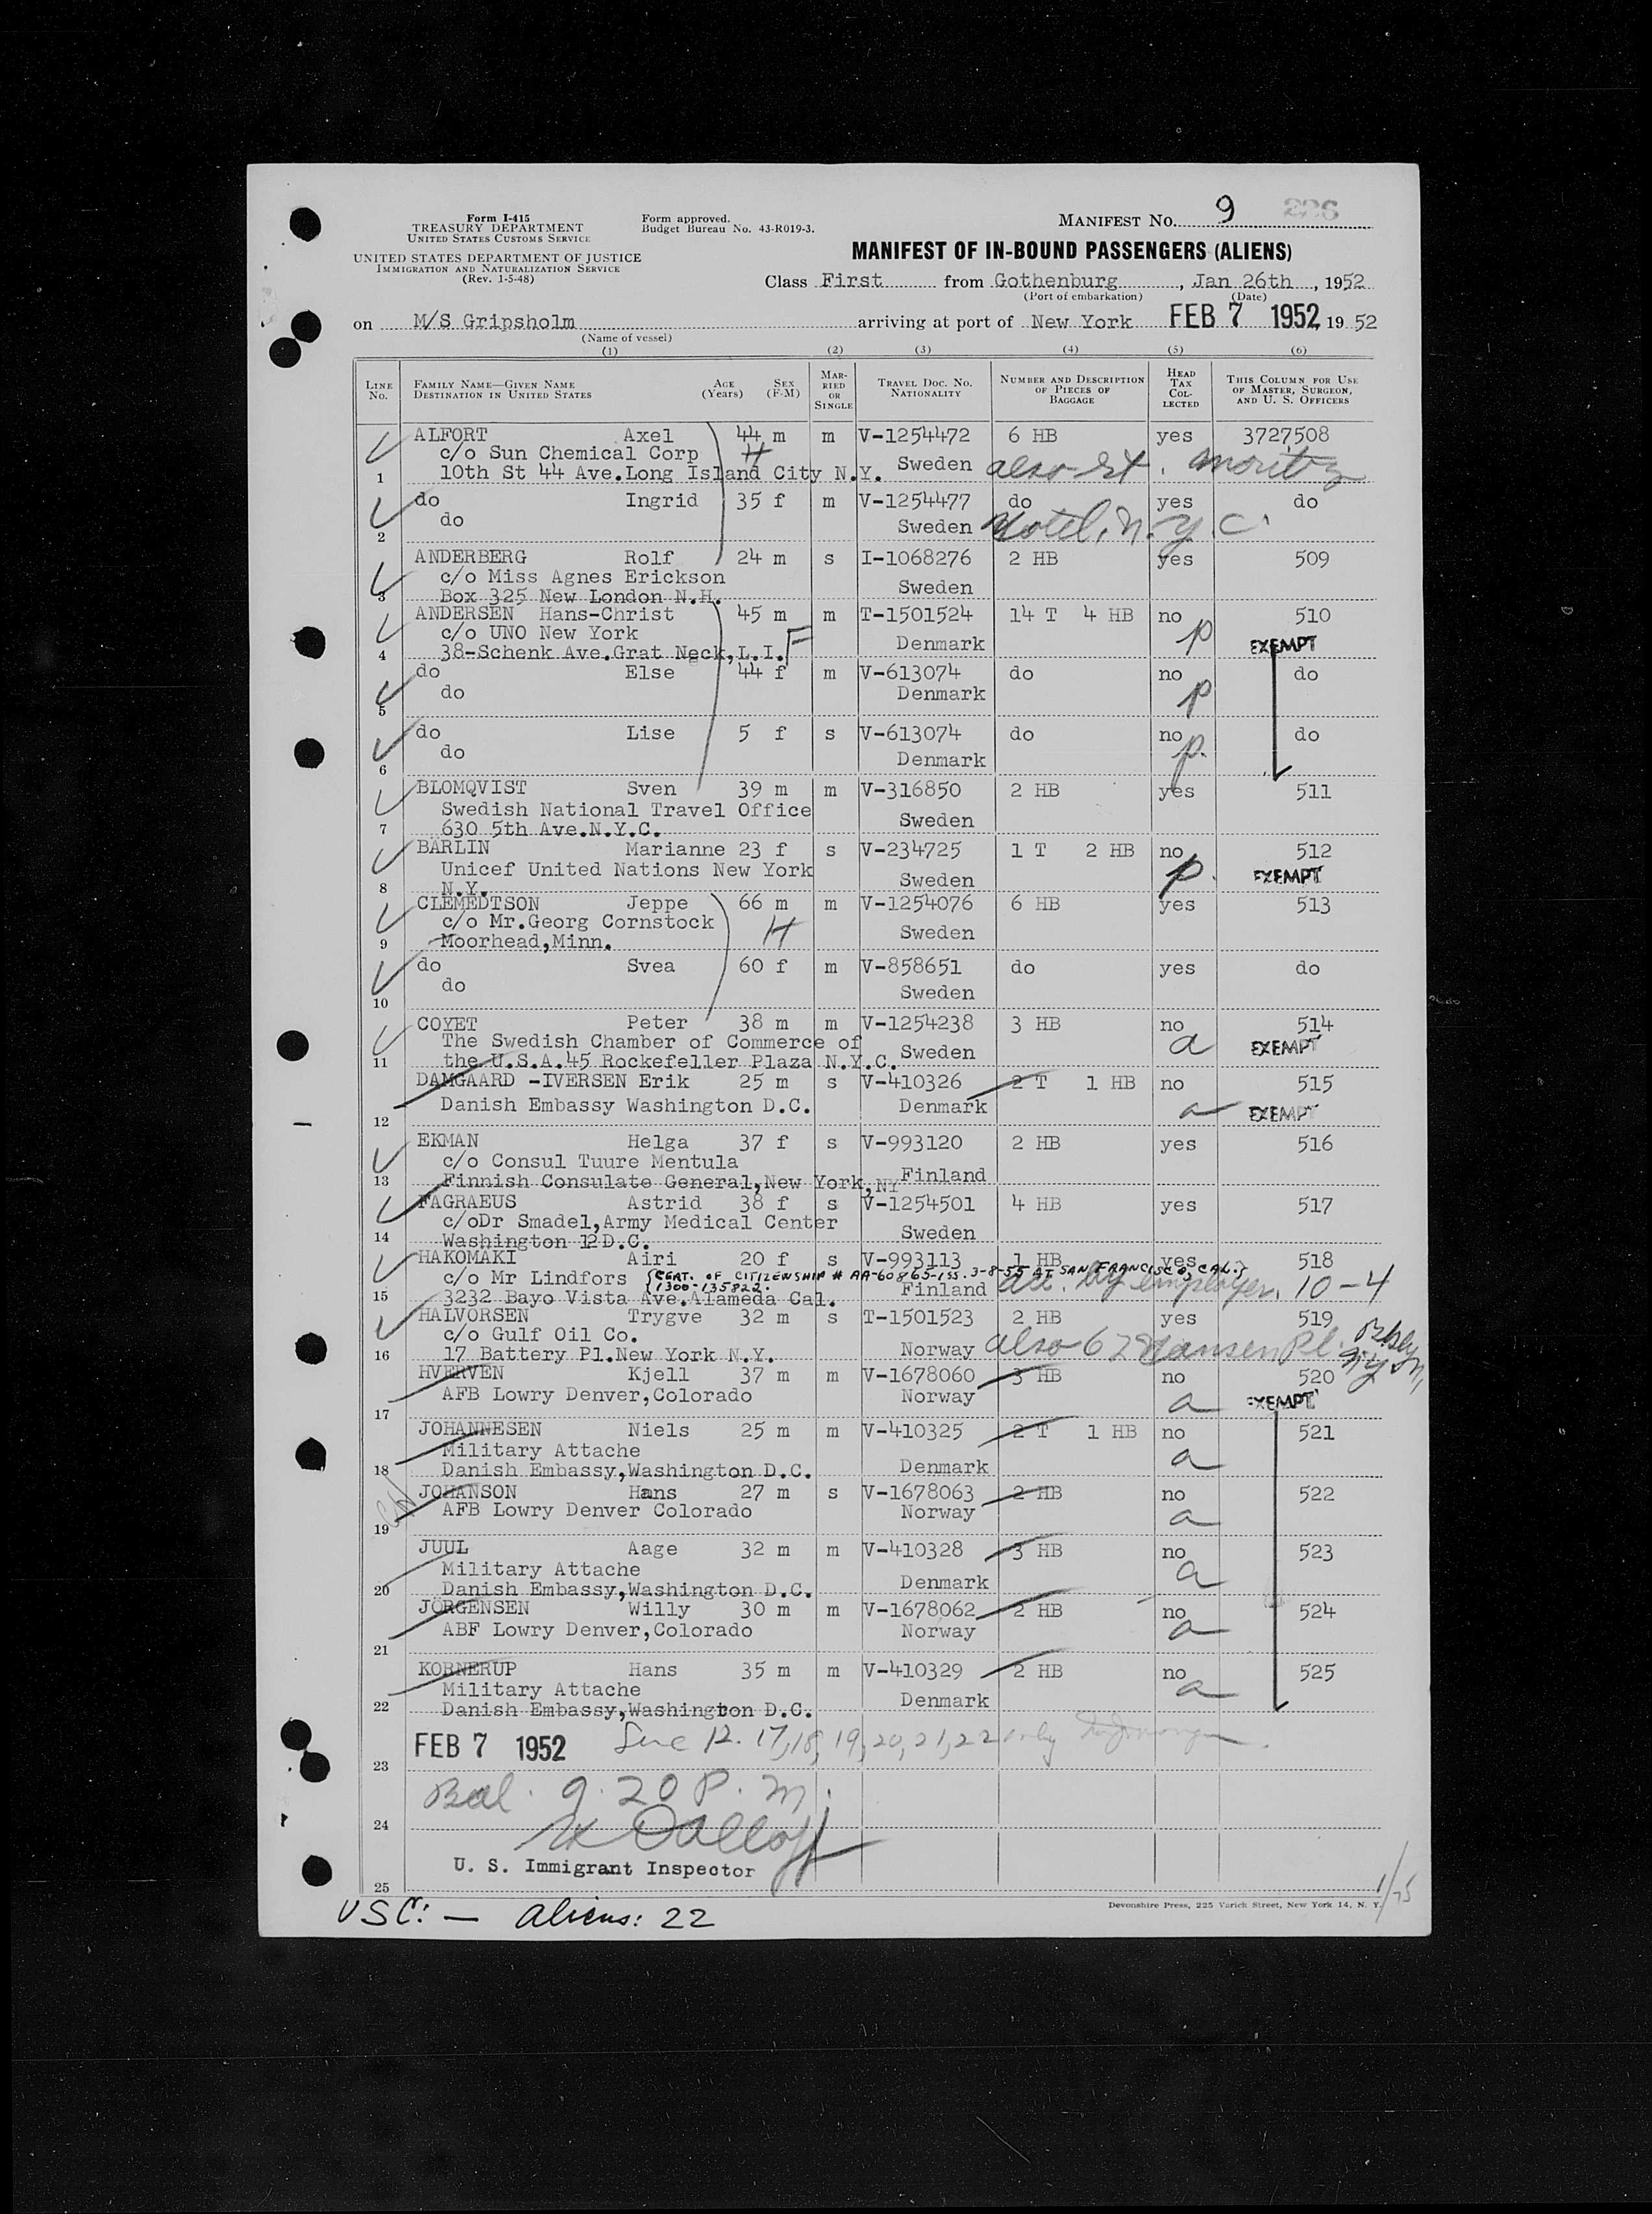 Form I-415
TREASURY DEPARTMENT
UNITED STATES CUSTOMS SERVICE
UNITED STATES DEPARTMENT OF JUSTICE
IMMIGRATION AND NATURALIZATION SERVICE
(Rev. 1-5-48)
Form approved.
Budget Bureau No. 43-R019-3.
MANIFEST NO. 9
MANIFEST OF IN-BOUND PASSENGERS (ALIENS)
Class First from Gothenburg, Jan 26th, 1952
(Port of embarkation) (Date)
on M/S Gripsholm arriving at port of New York FEB 7 1952, 19 52
(Name of vessel)
(1) (2) (3) (4) (5) (6)
LINE NO. FAMILY NAME—GIVEN NAME DESTINATION IN UNITED STATES AGE (Years) SEX (F-M) MARRIED OR SINGLE TRAVEL DOC. NO. NATIONALITY NUMBER AND DESCRIPTION OF PIECES OF BAGGAGE HEAD TAX COLLECTED THIS COLUMN FOR USE OF MASTER, SURGEON, AND U. S. OFFICERS
ALFORT Axel 44 m m V-1254472 6 HB yes 3727508
c/o Sun Chemical Corp H Sweden also St. Moritz
1 10th St 44 Ave.Long Island City N.Y.
do Ingrid 35 f m V-1254477 do yes do
do Sweden Hotel, N.Y.C.
2
ANDERBERG Rolf 24 m s I-1068276 2 HB yes 509
c/o Miss Agnes Erickson Sweden
3 Box 325 New London N.H.
ANDERSEN Hans-Christ 45 m m T-1501524 14 T 4 HB no 510
c/o UNO New York Denmark p EXEMPT
4 38-Schenk Ave.Grat Neck,L.I. F
do Else 44 f m V-613074 do no do
do Denmark p
5
do Lise 5 f s V-613074 do no do
do Denmark p.
6
BLOMQVIST Sven 39 m m V-316850 2 HB yes 511
Swedish National Travel Office Sweden
7 630 5th Ave.N.Y.C.
BÄRLIN Marianne 23 f s V-234725 1 T 2 HB no 512
Unicef United Nations New York Sweden p. EXEMPT
8 N.Y.
CLEMEDTSON Jeppe 66 m m V-1254076 6 HB yes 513
c/o Mr.Georg Cornstock H Sweden
9 Moorhead,Minn.
do Svea 60 f m V-858651 do yes do
do Sweden
10
COYET Peter 38 m m V-1254238 3 HB no 514
The Swedish Chamber of Commerce of Sweden a EXEMPT
11 the U.S.A.45 Rockefeller Plaza N.Y.C.
DAMGAARD -IVERSEN Erik 25 m s V-410326 2 T 1 HB no 515
Danish Embassy Washington D.C. Denmark a EXEMPT
12
EKMAN Helga 37 f s V-993120 2 HB yes 516
c/o Consul Tuure Mentula Finland
13 Finnish Consulate General,New York,NY
FAGRAEUS Astrid 38 f s V-1254501 4 HB yes 517
c/oDr Smadel,Army Medical Center Sweden
14 Washington 12D.C.
HAKOMÄKI Airi 20 f s V-993113 1 HB yes 518
c/o Mr Lindfors (CERT. OF CITIZENSHIP # AA-60865-ISS. 3-8-55 AT SAN FRANCISCO, CAL.)
1300-135822. Finland acc. by employer. 10-4
15 3232 Bayo Vista Ave.Alameda Cal.
HALVORSEN Trygve 32 m s T-1501523 2 HB yes 519
c/o Gulf Oil Co. Norway also 62 Hansen Pl.
16 17 Battery Pl.New York N.Y.
HVERVEN Kjell 37 m m V-1678060 3 HB no 520
AFB Lowry Denver,Colorado Norway a EXEMPT
17
JOHANNESEN Niels 25 m m V-410325 2 T 1 HB no 521
Military Attache a
18 Danish Embassy,Washington D.C. Denmark
JOHANSON Hans 27 m s V-1678063 2 HB no 522
AFB Lowry Denver Colorado Norway a
19
JUUL Aage 32 m m V-410328 3 HB no 523
Military Attache a
20 Danish Embassy,Washington D.C. Denmark
JÖRGENSEN Willy 30 m m V-1678062 2 HB no 524
ABF Lowry Denver,Colorado Norway a
21
KORNERUP Hans 35 m m V-410329 2 HB no 525
Military Attache a
22 Danish Embassy,Washington D.C. Denmark
FEB 7 1952 Line 12. 17, 18, 19, 20, 21, 22 only
23
Bal. 9.20 P.m.
24
U. S. Immigrant Inspector
25
USC: — aliens: 22
Devonshire Press, 225 Varick Street, New York 14, N. Y.